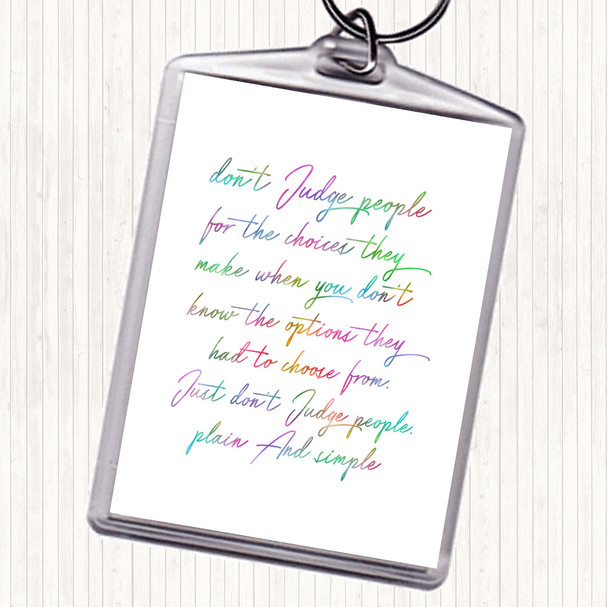 don't Judge people
for the choices they
make when you don't
know the options they
had to choose from.
Just don't Judge people.
plain And simple